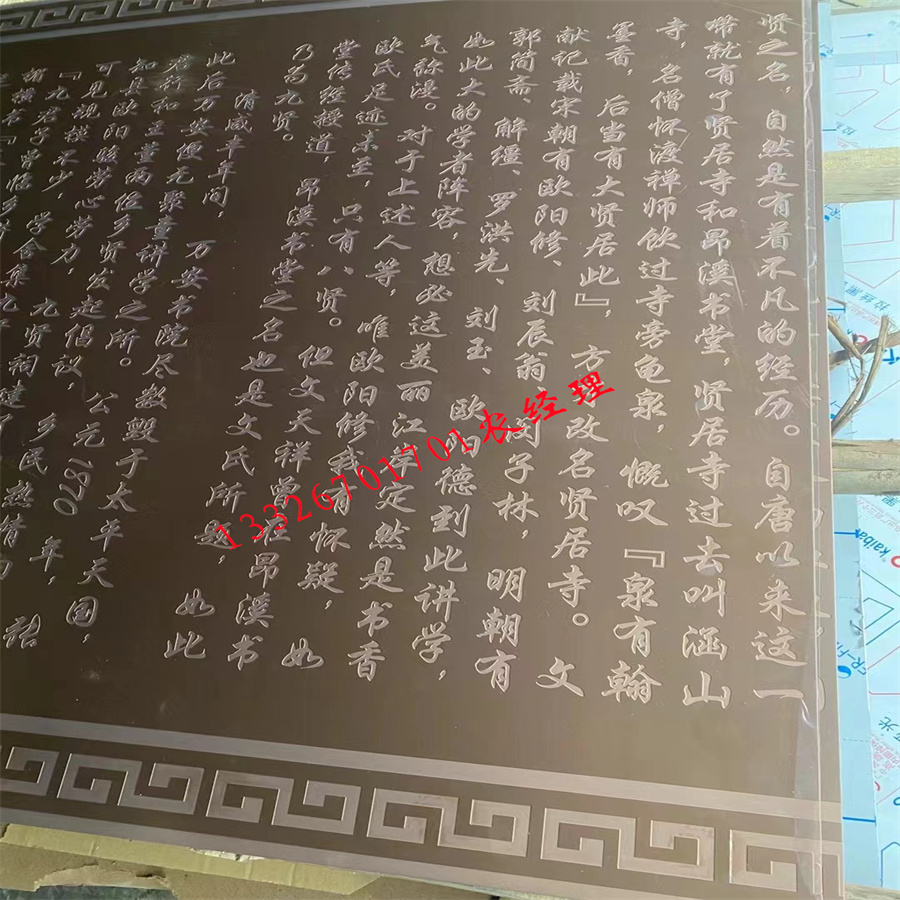 贤之名，自然是有着不凡的经历。自唐以来这一
带就有了贤居寺和昂溪书堂，贤居寺过去叫涵山
寺，名僧怀渡禅师饮过寺旁龟泉，慨叹『泉有翰
墨香，后当有大贤居此』，方才改名贤居寺。文
献记载宋朝有欧阳修、刘辰翁、闵子林，明朝有
郭简斋、解缰、罗洪先、刘玉、欧阳德到此讲学，
如此大的学者阵容，想必这美丽江岸定然是书香
气弥漫。对于上述人等，唯欧阳修我有怀疑，如
欧氏足迹未至，只有八贤。但文天祥曾在昂溪书
堂传经授道，昂溪书堂之名也是文氏所题，如此
乃为九贤。
清咸丰年间，万安书院尽数毁于太平天国，
此后万安便无聚童讲学之所。公元1870年，
君行和王董两位乡贤发起倡议，乡民热情
知县欧阳骏劳心劳力，九贤祠建了
可见规模不少，学合集
『九君子
13326701701农经理